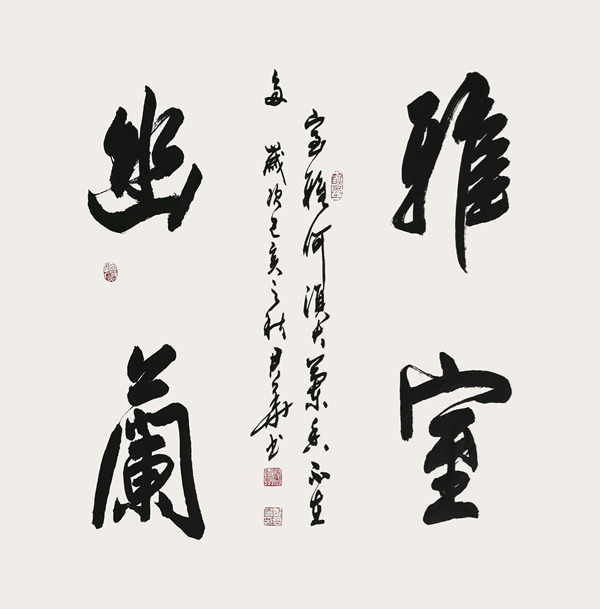 雅室
室雅何須大蘭香不在
多 歲次己亥之秋 華书
幽蘭